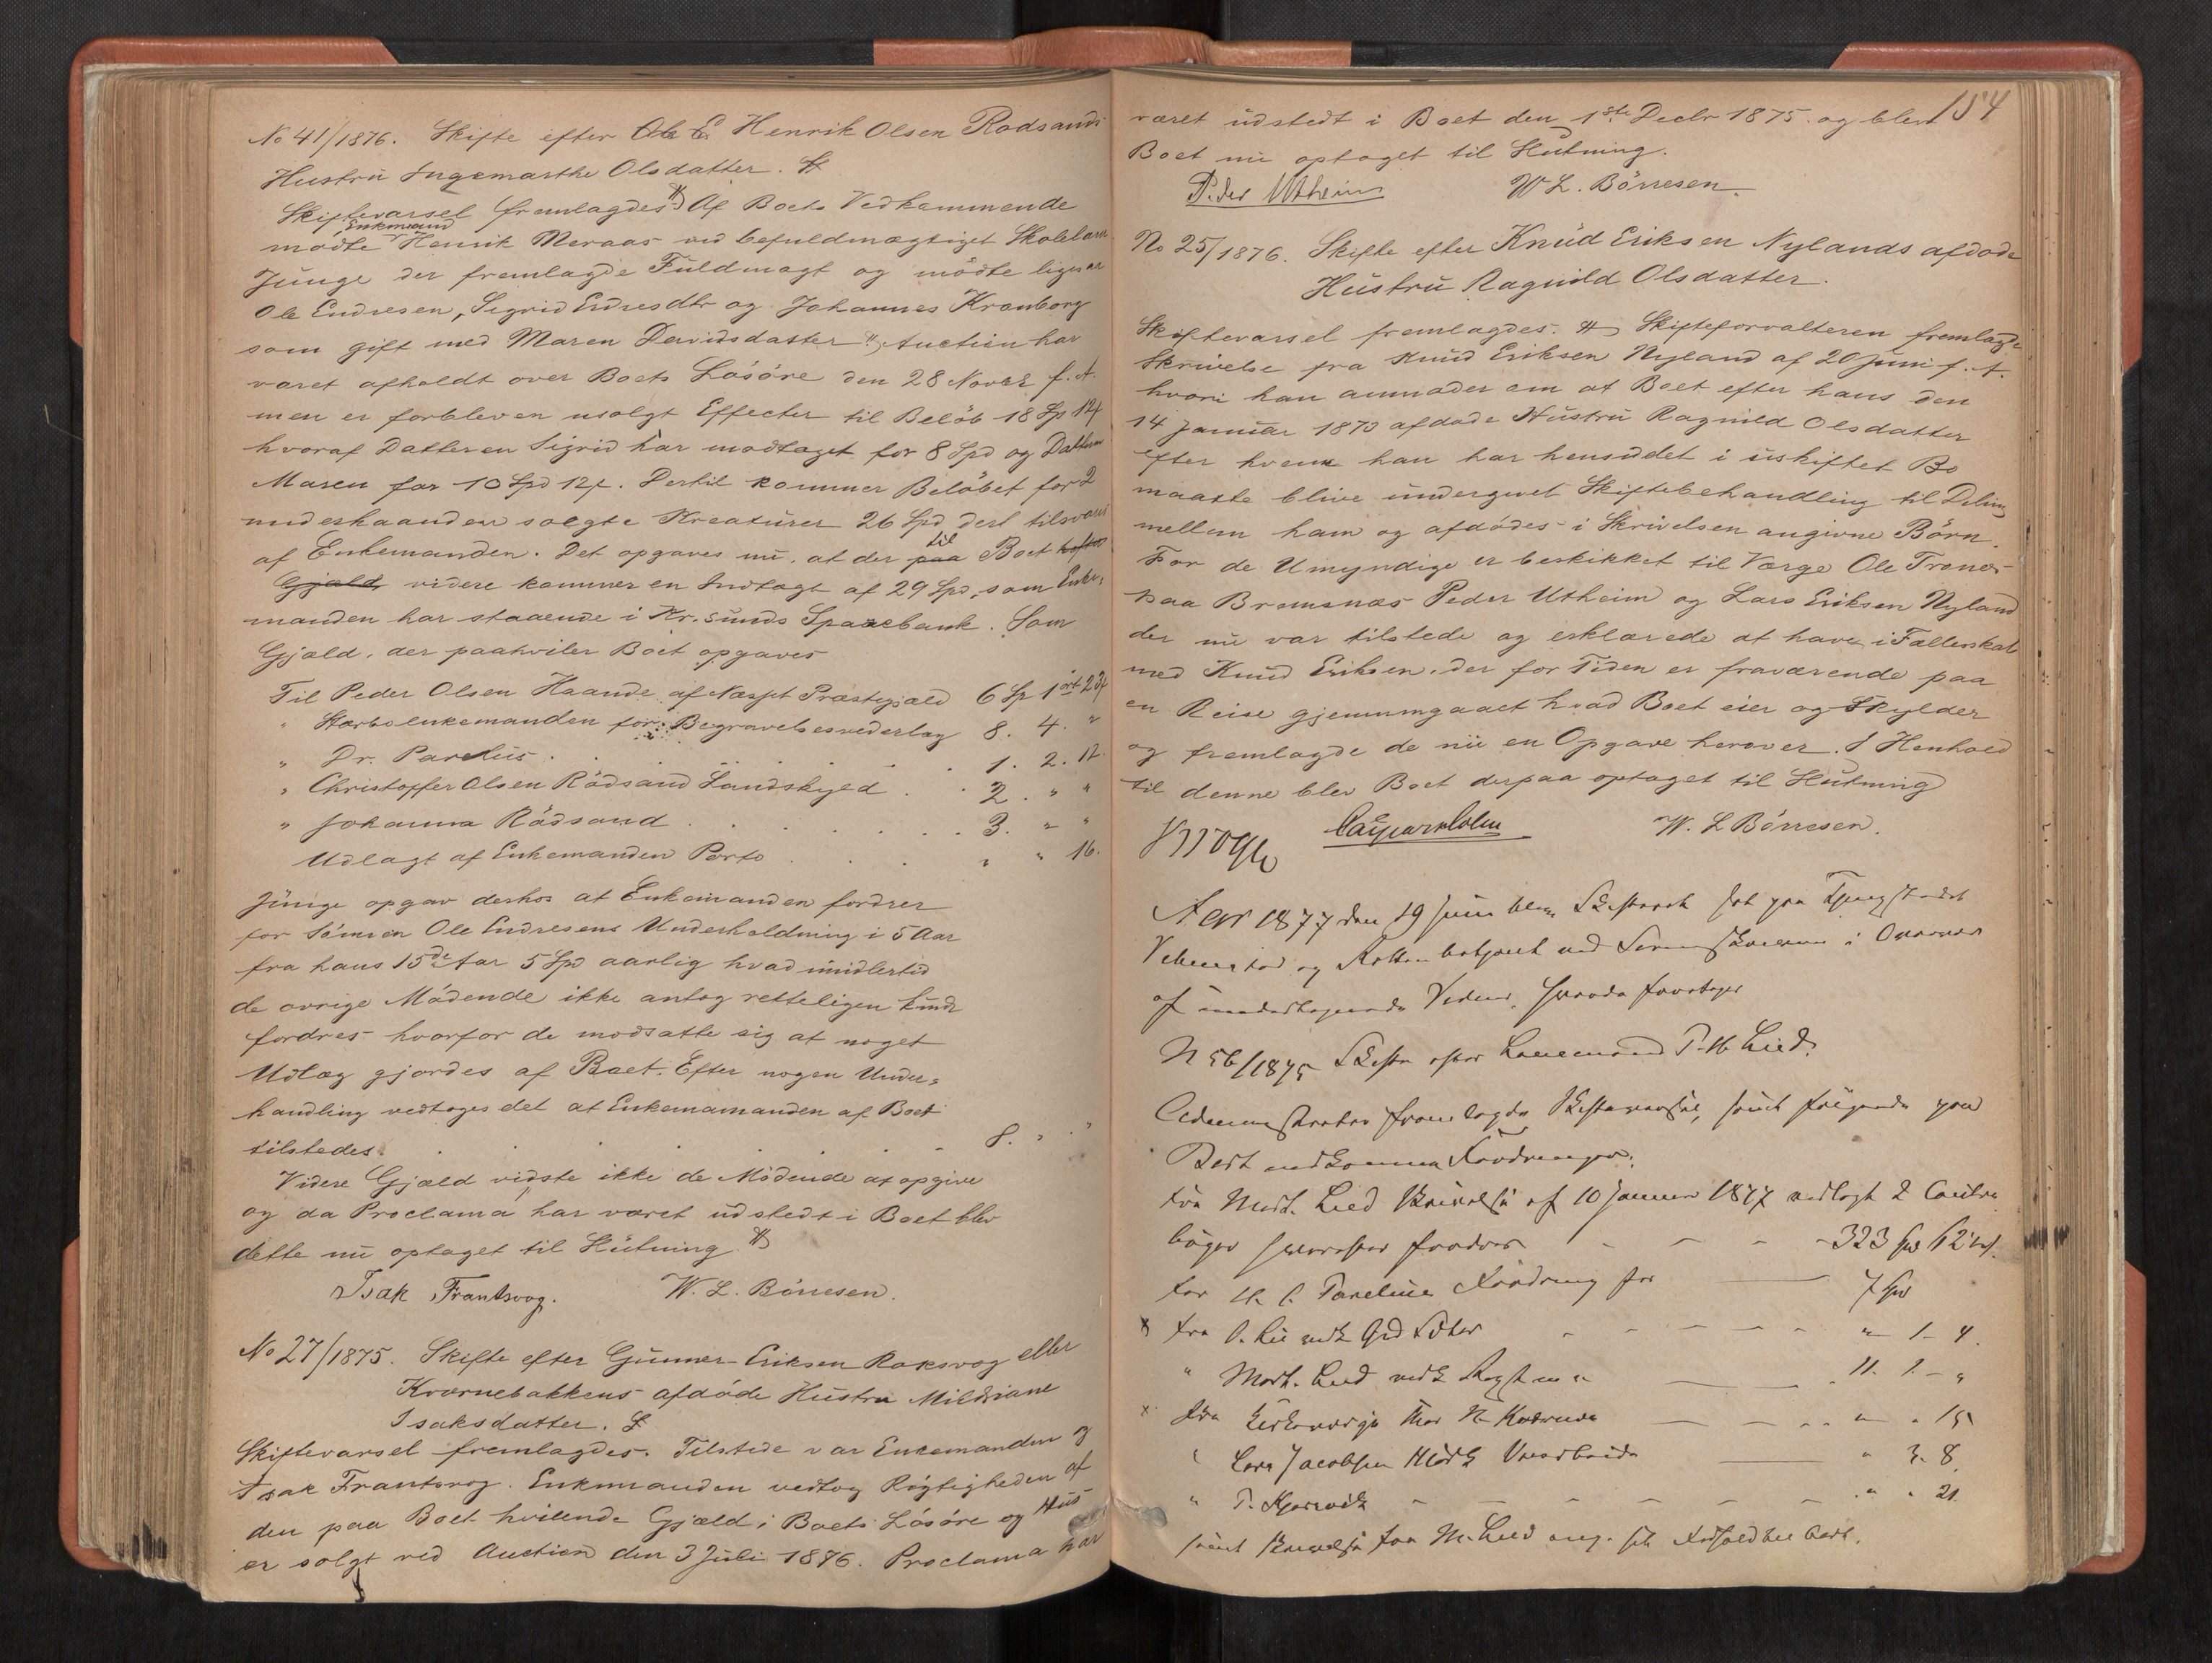 No 41/1876. Skifte efter Henrik Olsen Rodsands
Hustru Ingemarthe Olsdatter.
Skiftevarsel fremlagdes Af Boets Vedkommende
mødte Enkmand Henrik Meraas ved befuldmægtiget Skolelærer
Junge der fremlagde Fuldmagt og mödte ligesaa
Ole Endresen, Sigrid Endresdtr og Johannes Kranborg
som gift med Maren Davidsdatter Auction har
været afholdt over Boets Lösöre den 28 Novbr f. A.
men er forbleven usolgt Effecter til Belöb 18 Sp 12
hvoraf Datteren Sigrid har modtaget for 8 Spd og Datteren
Maren for 10 Spd 12. Dertil kommer Belöbet for 2
underhaanden solgte Kreaturer 26 Spd, der tilsvares
af Enkemanden. Det opgaves nu, at der paa til Boet hefter
Gjæld, videre kommer en Indtægt af 29 Spd, som Enke-
manden har staaende i Kr.sunds Sparebank. Som
Gjæld, der paahviler Boet opgaves
Til Peder Olsen Haande af Næsset Præstegjæld 6 Sp 1 ort 2
" Stærboenkemanden for Begravelsesvederlag 8. 4. "
" Dr. Parelius 1. 2. 12
" Christoffer Olsen Rödsand Landskyld 2. " "
" Johanna Rödsand 3. " "
Udlagt af Enkemanden Porto " " 16.
Junge opgav derhos at Enkemanden fordrer
for Sönnen Ole Endresens Underholdning i 5 Aar
fra hans 15de Aar 5 Spd aarlig hvad imidlertid
de ovrige Mödende ikke antog retteligen kunde
fordres hvorfor de modsatte sig at noget
Udlæg gjordes af Boet. Efter nogen Under-
handling vedtoges det at Enkemamanden af Boet
tilstedes 8. " "
Videre Gjæld vidste ikke de Mödende at opgive
og da Proclama har været udstedt i Boet blev
dette nu optaget til Slutning
Isak Frantsvog. W. L. Börresen.
No 27/1875. Skifte efter Gunner Eriksen Roksvog eller
Kvornebakkens afdöde Hustru Mildriane
Isaksdatter.
Skiftevarsel fremlagdes. Tilstede var Enkemanden og
Isak Frantsvog. Enkemanden vedtog Rigtigheden af
den paa Boet hvilende Gjæld i Boets Lösöre og Hus
er solgt ved Auction den 3 Juli 1876. Proclama har
154
været udstedt i Boet den 1ste Decbr 1875 og blev
Boet nu optaget til Slutning.
Peder Utheim W L. Börresen.
No 25/1876. Skifte efter Knud Eriksen Nylands afdöde
Hustru Ragnild Olsdatter.
Skiftevarsel fremlagdes. Skifteforvalteren fremlagde
Skrivelse fra Knud Eriksen Nyland af 20 Juni f. A.
hvori han anmoder om at Boet efter hans den
14 Januar 1873 afdøde Hustru Ragnild Olsdatter
efter hvem han har hensiddet i uskiftet Bo
maatte blive undergivet Skiftebehandling til Deling
mellem ham og afdödes i Skrivelsen angivne Börn.
For de Umyndige er beskikket til Værge Ole Tranes
paa Bremsnæs Peder Utheim og Lars Eriksen Nyland
der nu var tilstede og erklærede at have i Fællesskab
med Knud Eriksen, der for Tiden er fraværende paa
en Reise gjennemgaaet hvad Boet eier og Skylder
og fremlagde de nu en Opgave herover. I Henhold
til denne blev Boet derpaa optaget til Slutning
Krogh Casper Holm W. L Börresen.
Aar 1877 den 19 Juni blev Skifteret sat paa Thingstedet
og Retten betjent ved Sorenskriveren i Overvær
af undertegnede Vidner. Hvorda foretoges
N 56/1875 Skifte efter Lensmand P. M. Lied.
Administrator fremlagde Skiftevarsel, samt følgende paa
Boet vedkommen Fordringer:
Fra Mort. Lied Skrivelse af 10 Januar 1877 vedlagt 2 Contra
bøger hvorefter fordres 323 Spd 12
For H. C. Parelius Fordring for 7 Spd
x Fra O. Lie " 1 - 4.
" Mort. Lied 11. 1. - "
x Fra Kirkeværge Thor N. " " 15
" Lars Jacobsen " 3. 8
" P. " " 21
samt Skrivelse fra M. Lied ang. sit Forhold til Boet.